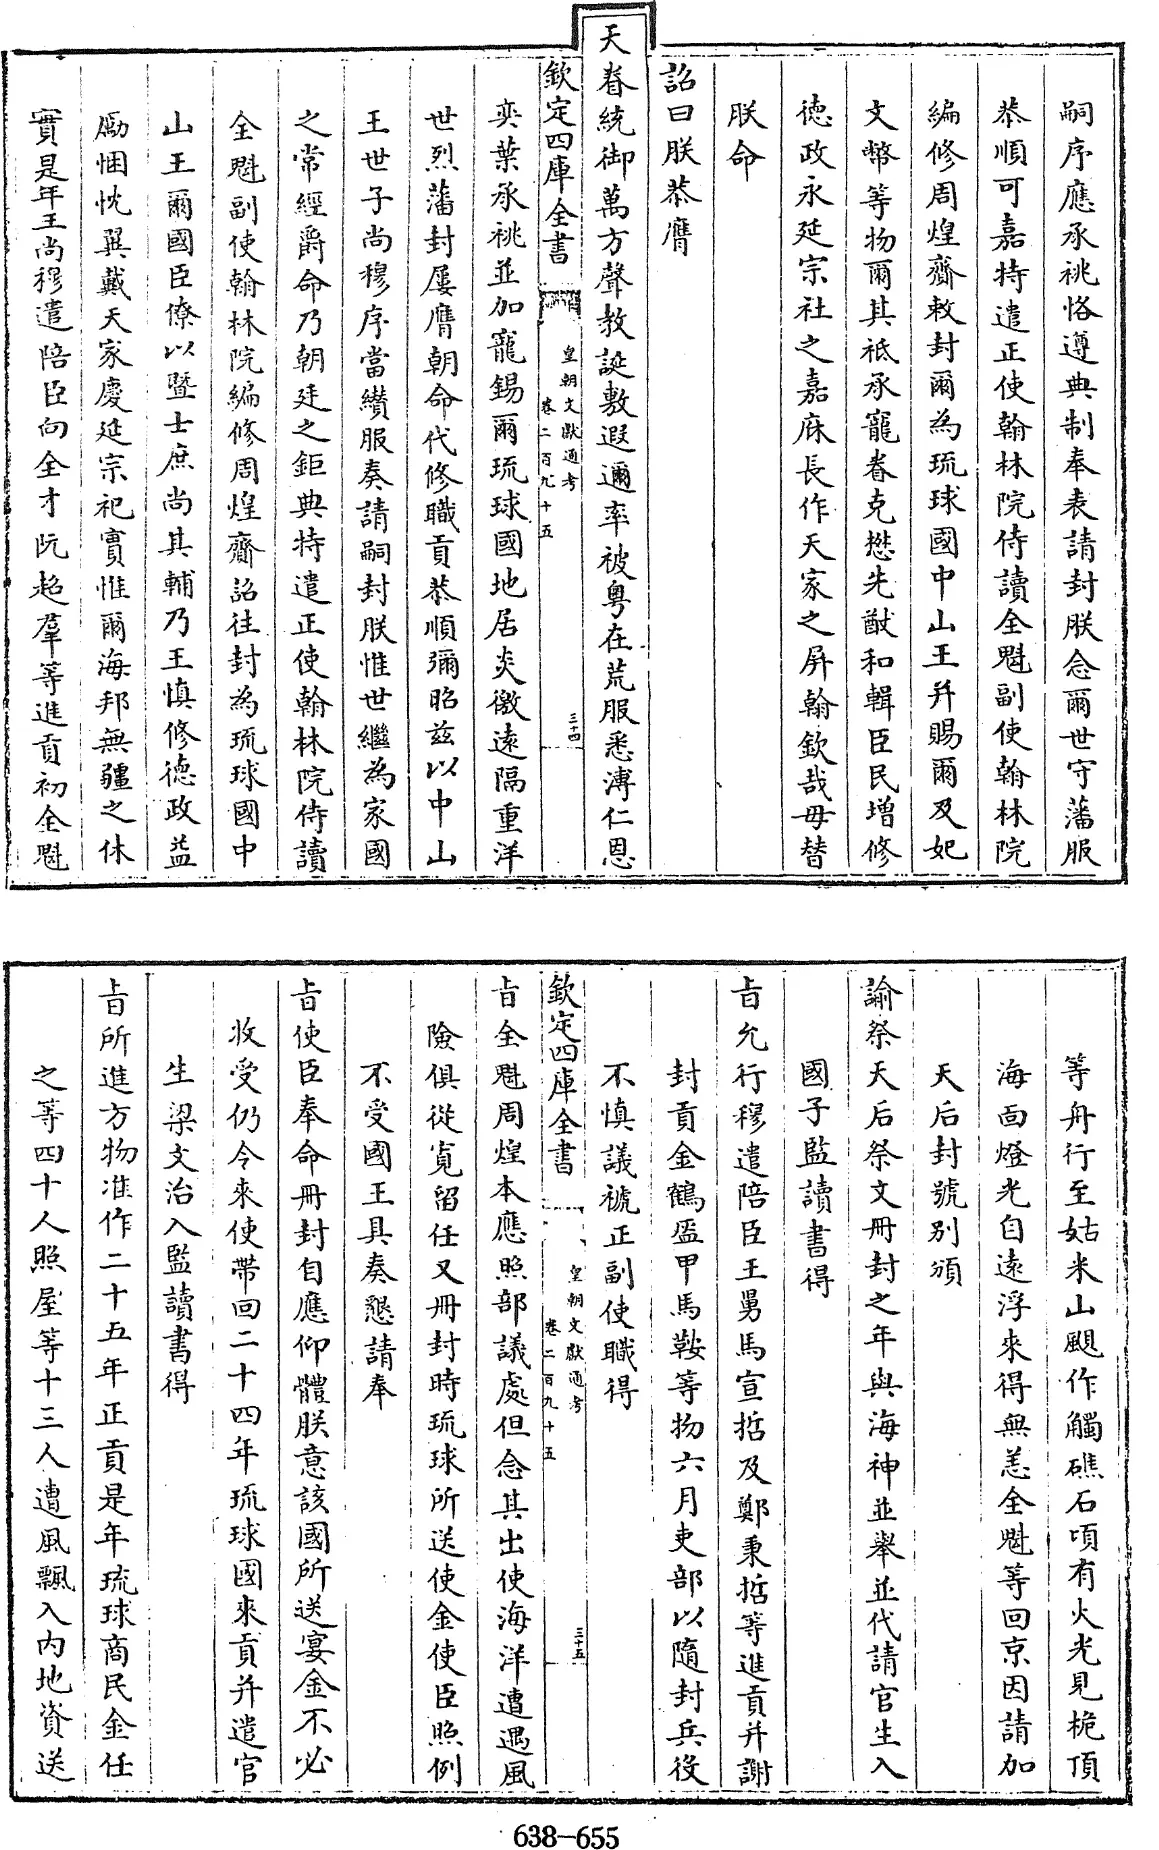 嗣序應承祧恪遵典制奉表請封朕念爾世守藩服
恭順可嘉特遣正使翰林院侍讀全魁副使翰林院
編修周煌齎敕封爾為琉球國中山王并賜爾及妃
文幣等物爾其祗承寵眷克懋先猷和輯臣民增修
德政永延宗社之嘉庥長作天家之屏翰欽哉毋替
朕命
詔曰朕恭膺
天眷統御萬方聲教誕敷遐邇率被粤在荒服悉溥仁恩
欽定四庫全書
皇朝文獻通考
卷二百九十五
三十四
奕葉承祧並加寵錫爾琉球國地居炎徼遠隔重洋
世烈藩封屢膺朝命代修職貢恭順彌昭兹以中山
王世子尚穆序當纘服奏請嗣封朕惟世繼為家國
之常經爵命乃朝廷之鉅典特遣正使翰林院侍讀
全魁副使翰林院編修周煌齎詔往封為琉球國中
山王爾國臣僚以暨士庶尚其輔乃王慎修德政益
勵悃忱翼戴天家慶延宗祀實惟爾海邦無疆之休
實是年王尚穆遣陪臣向全才阮超羣等進貢初全魁
等舟行至姑米山颶作觸礁石頃有火光見桅頂
海面燈光自遠浮來得無恙全魁等回京因請加
天后封號别頒
諭祭天后祭文冊封之年與海神並舉並代請官生入
國子監讀書得
旨允行穆遣陪臣王舅馬宣哲及鄭秉哲等進貢并謝
封貢金鶴盔甲馬鞍等物六月吏部以隨封兵役
不慎議褫正副使職得
欽定四庫全書
皇朝文獻通考
卷二百九十五
三十五
旨全魁周煌本應照部議處但念其出使海洋遭遇風
險俱從寛留任又冊封時琉球所送使金使臣照例
不受國王具奏懇請奉
旨使臣奉命冊封自應仰體朕意該國所送宴金不必
收受仍令來使帶回二十四年琉球國來貢并遣官
生梁文治入監讀書得
旨所進方物准作二十五年正貢是年琉球商民金任
之等四十人照屋等十三人遭風飄入内地資送
638-655